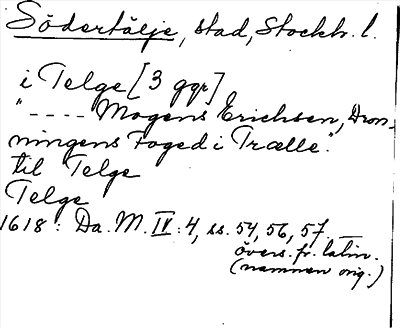 Södertälje, stad, Stockh. l.
i Telge [3 ggr]
"---- Mogens Erichsen, Dron-
ningens Foged i Trælle".
til Telge
Telge
1618: Da. M. IV: 4, ss. 54, 56, 57.
övers. fr. latin.
(namnen orig.)